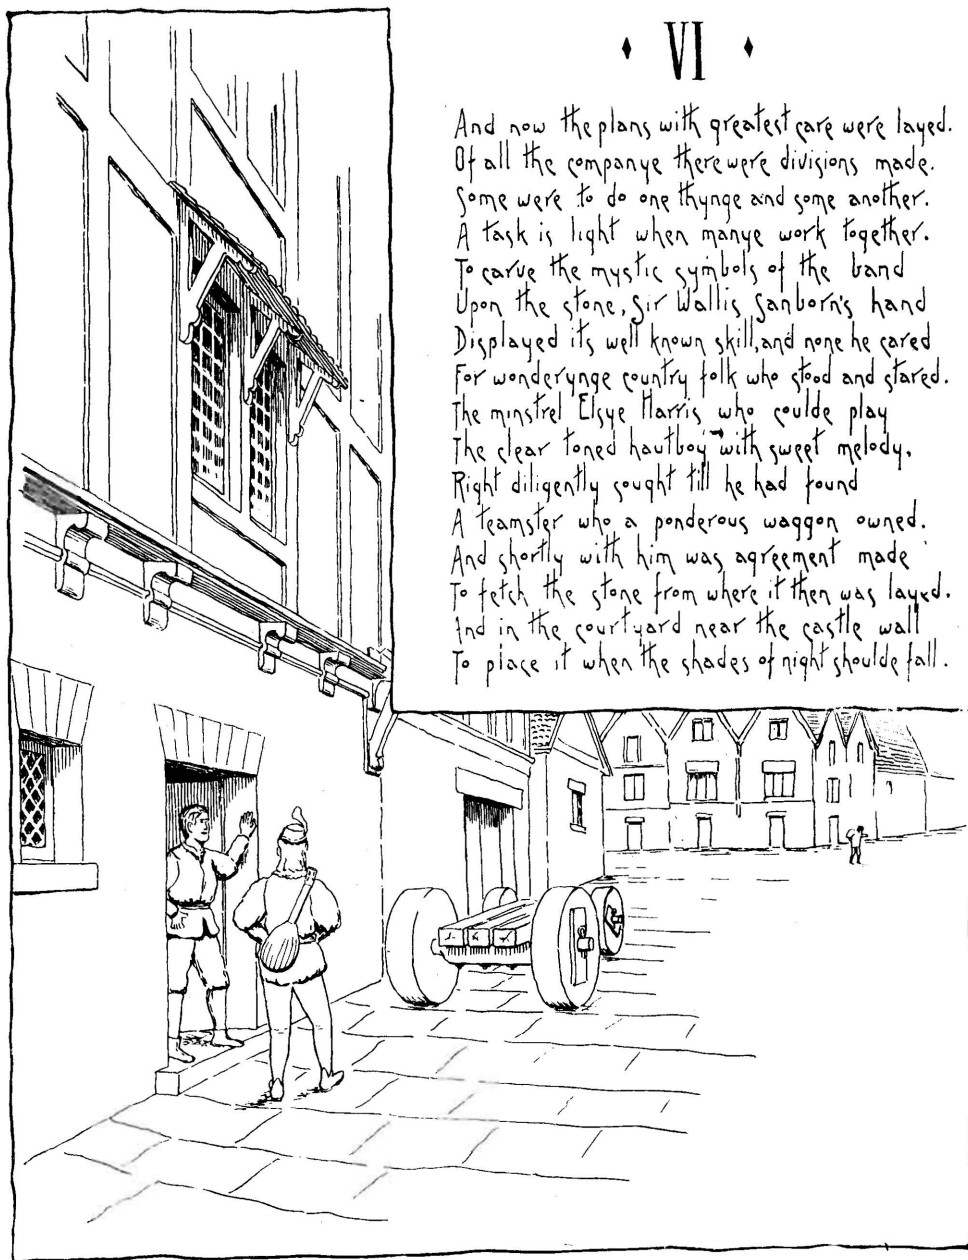 VI
And now the plans with greatest care were layed.
Of all the companye there were divisions made.
Some were to do one thynge and some another.
A task is light when manye work together.
To carve the mystic symbols of the band
Upon the stone, Sir Wallis Sanborn's hand
Displayed its well known skill, and none he cared
For wonderynge country folk who stood and stared.
The minstrel Elsye Harris who coulde play
The clear toned hautboy with sweet melody,
Right diligently sought till he had found
A teamster who a ponderous waggon owned.
And shortly with him was agreement made
To fetch the stone from where it then was layed.
And in the courtyard near the castle wall
To place it when the shades of night shoulde fall.